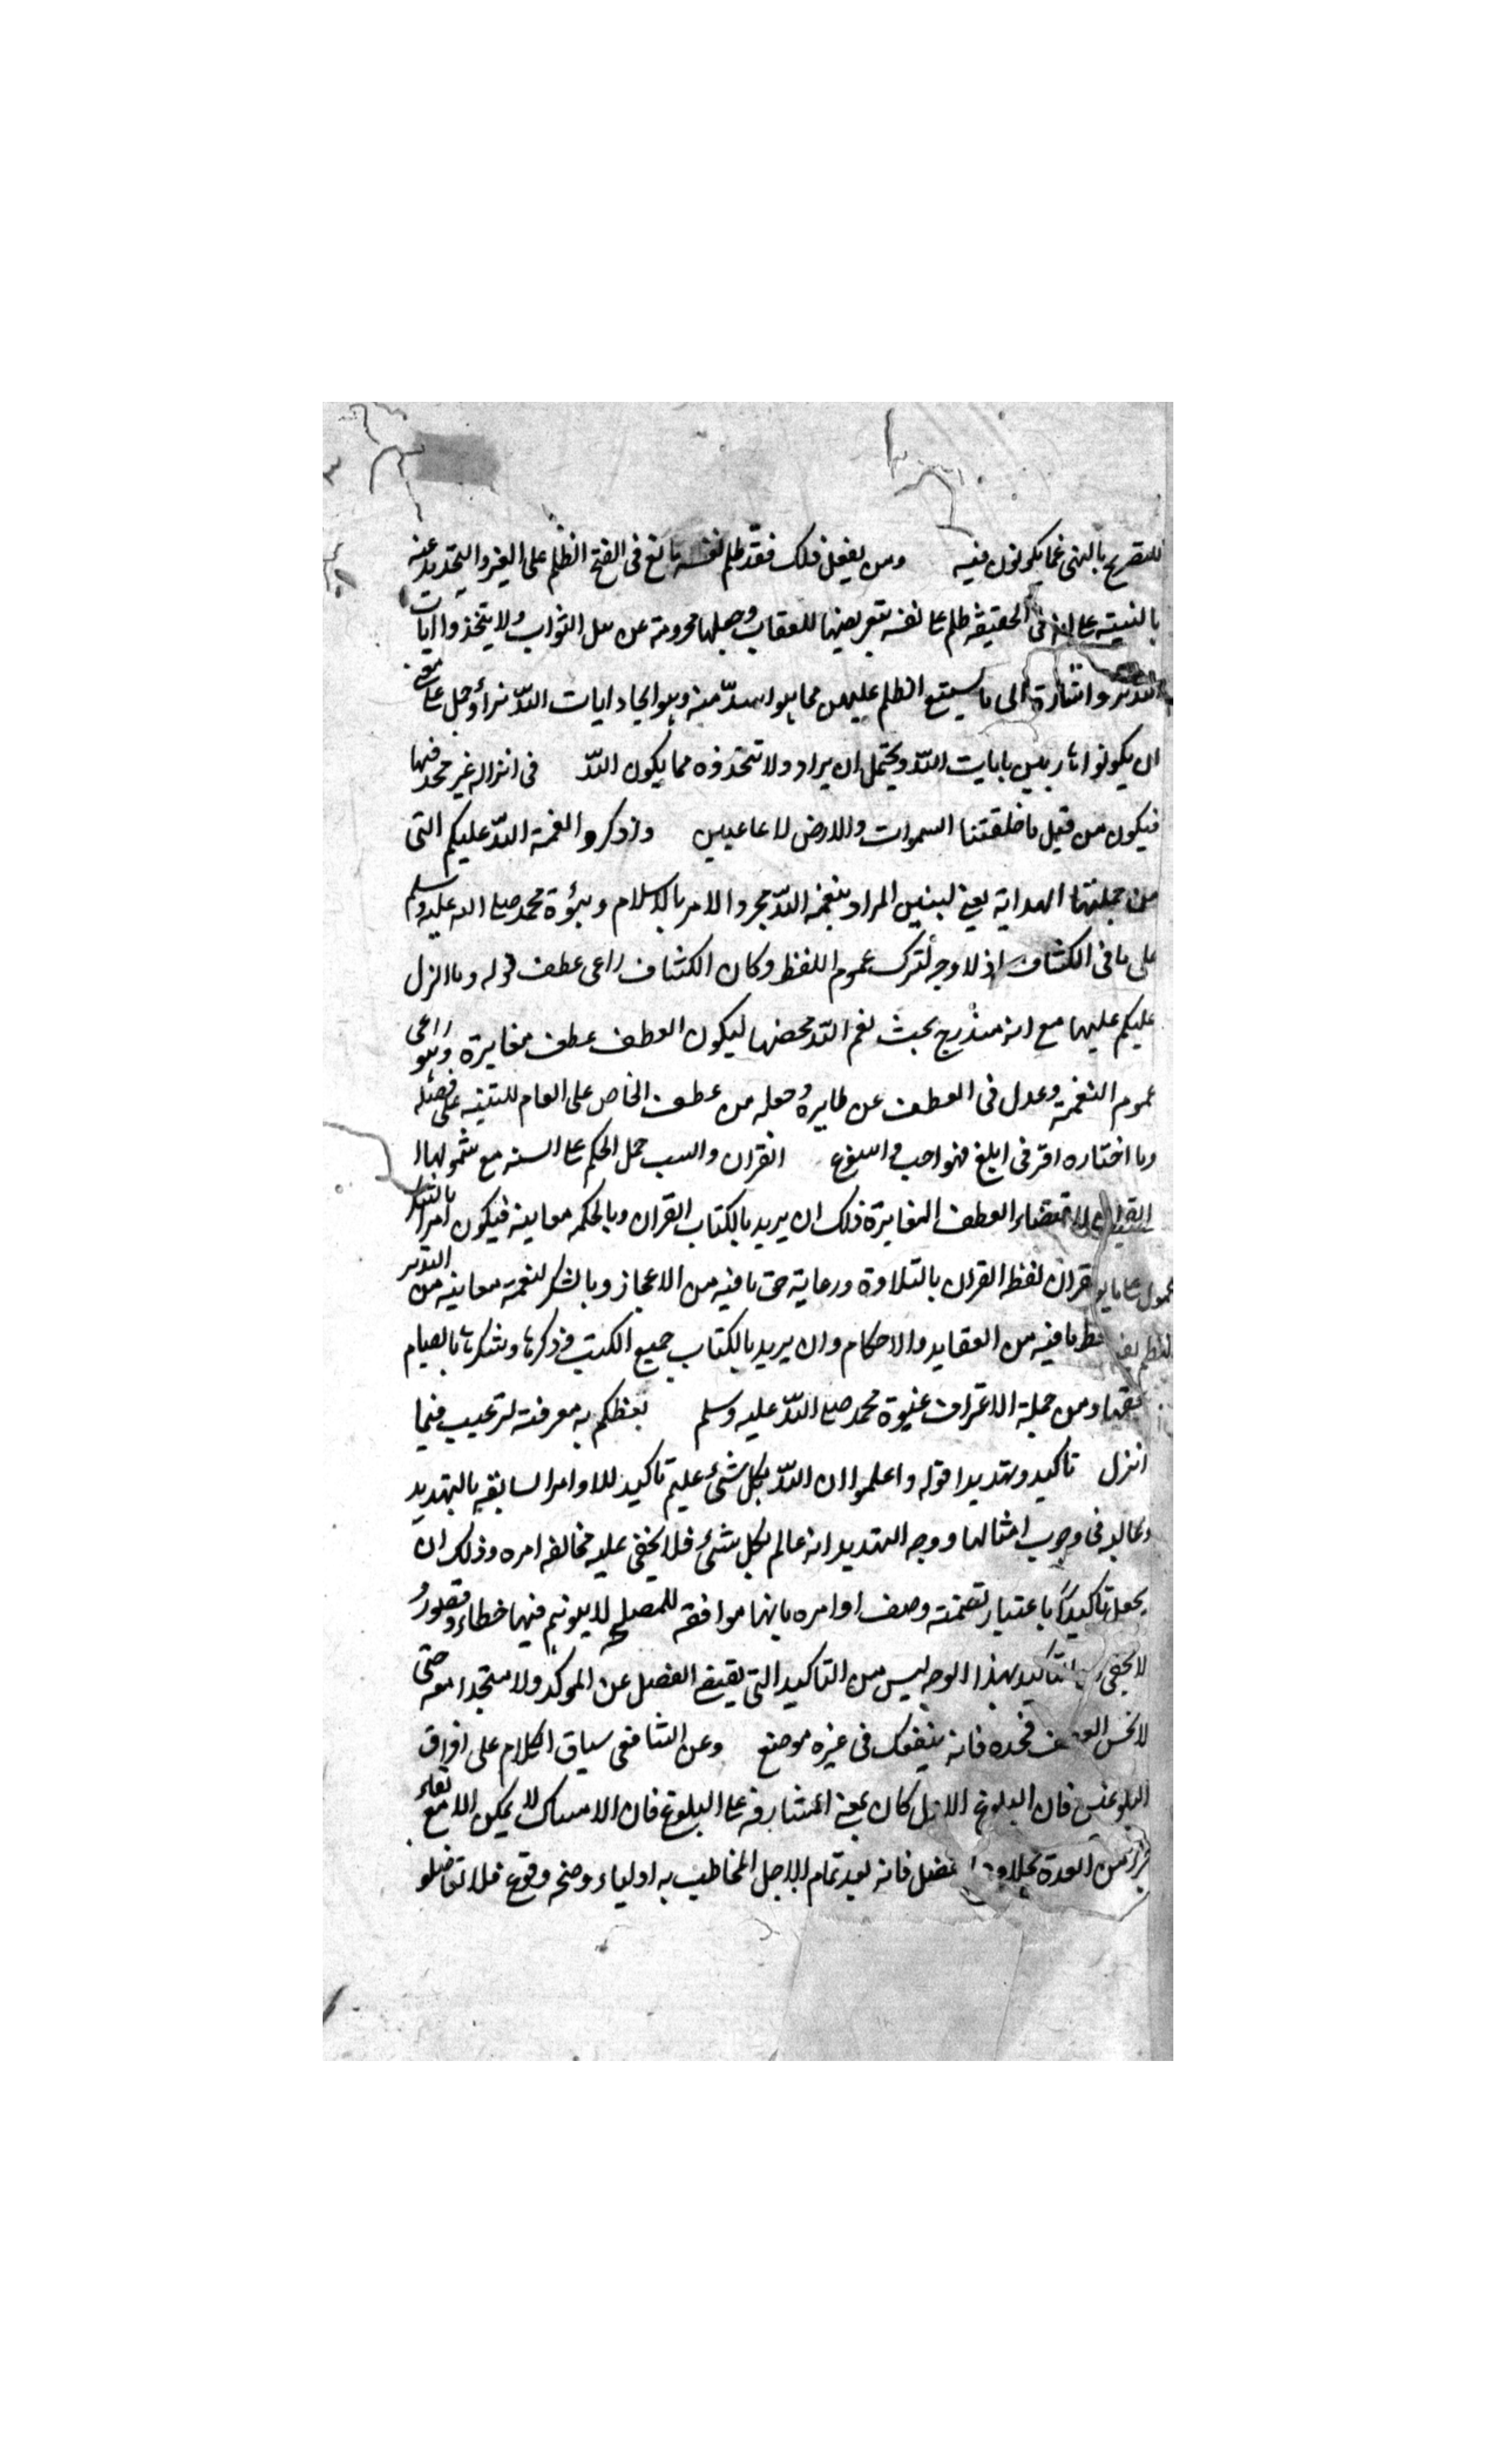 للتصريح بالنهى عما يكونون فيه ومن يفعل ذلك فقد ظلم نفسه بالغ فى الفتح الظلم على الغير والتحديد عنه
بالنسبة على انه فى الحقيقة ظلم على نفسه بتعريضها للعقاب وجعلها محرومة عن نيل الثواب ولا يتخذوا ايات
واشارة الى ما يستتبع الظلم عليهن مما هو اشد منه وهو ايجاد ايات اللّه
ان يكونوا بايات اللّه ويحتمل ان يراد ولا تتخذوه مما يكون اللّه فى انزاله غير محد فيها
فيكون من قبيل ما خلقتنا السموات والارض لاعاعبين واذكروا نعمة اللّه عليكم التى
من جملتها الهداية يعنى ليس المراد بنعمة اللّه مجرد الامر بالاسلام ونبوة محمد صلى الله عليه وسلم
على ما فى الكشاف اذ لا وجه لترك عموم اللفظ وكان الكشاف راعى عطف قوله وما انزل
عليكم عليها مع انه مندرج بحث نعم اللّه محضها ليكون العطف عطف مغايرة وهو راعى
عموم النعمة وعدل فى العطف عن ظاهره وجعله من عطف الخاص على العام للتنبيه على فضله
وما اختاره اقر فى ابلغ فهو احب واسوغ القران والسب حمل الحكم على السنه مع شمولها
لاقتضاء العطف المغايرة فلك ان يريد بالكتاب القران وبالحكمه معاينه فيكون امرا بالشكر
قران لفظ القران بالتلاوة ورعاية حق ما فيه من الاعجاز وبالشكر لنعمة معانيه من التدبر
ما فيه من العقايد والاحكام وان يريد بالكتاب جميع الكتب فذكرها وشكرها بالصيام
ومن جملة الاعتراف محمد صلى اللّه عليه وسلم يعظكم به معرفته لترغيب فيما
انزل تاكيد وتهديدا قوله واعلموا ان اللّه بكل شئ عليم تاكيد للاوامر السابقه بالتهديد
فى وجوب امثالها ووجه التهديد انه عالم بكل شئ فلا يخفى عليه مخالفه امره وذلك ان
يجعل تاكيدًا باعتبار تضمنه وصف اوامره بانها موافقه للمصلح لا يتوهم فيها خطاء وقصورٌ
لا يخفى التاكيد بهذا الوجه ليس من التاكيد التى يقتضى الفصل عن الموكد ولا متجدا معه حتى
لا يحسن العطف فخده فانه ينفعك فى غيره موضع وعن الشافعى سياق الكلام على افراق
البلوغين فان البلوغ الاول كان بمعنى المشارفة على البلوغ فان الامساك لا يمكن الا مع بقاء
جزء من العدة بخلاف عضل فانه بعد تمام الاجل المخاطب به اولياء وضح وقوع فلا تعضلو